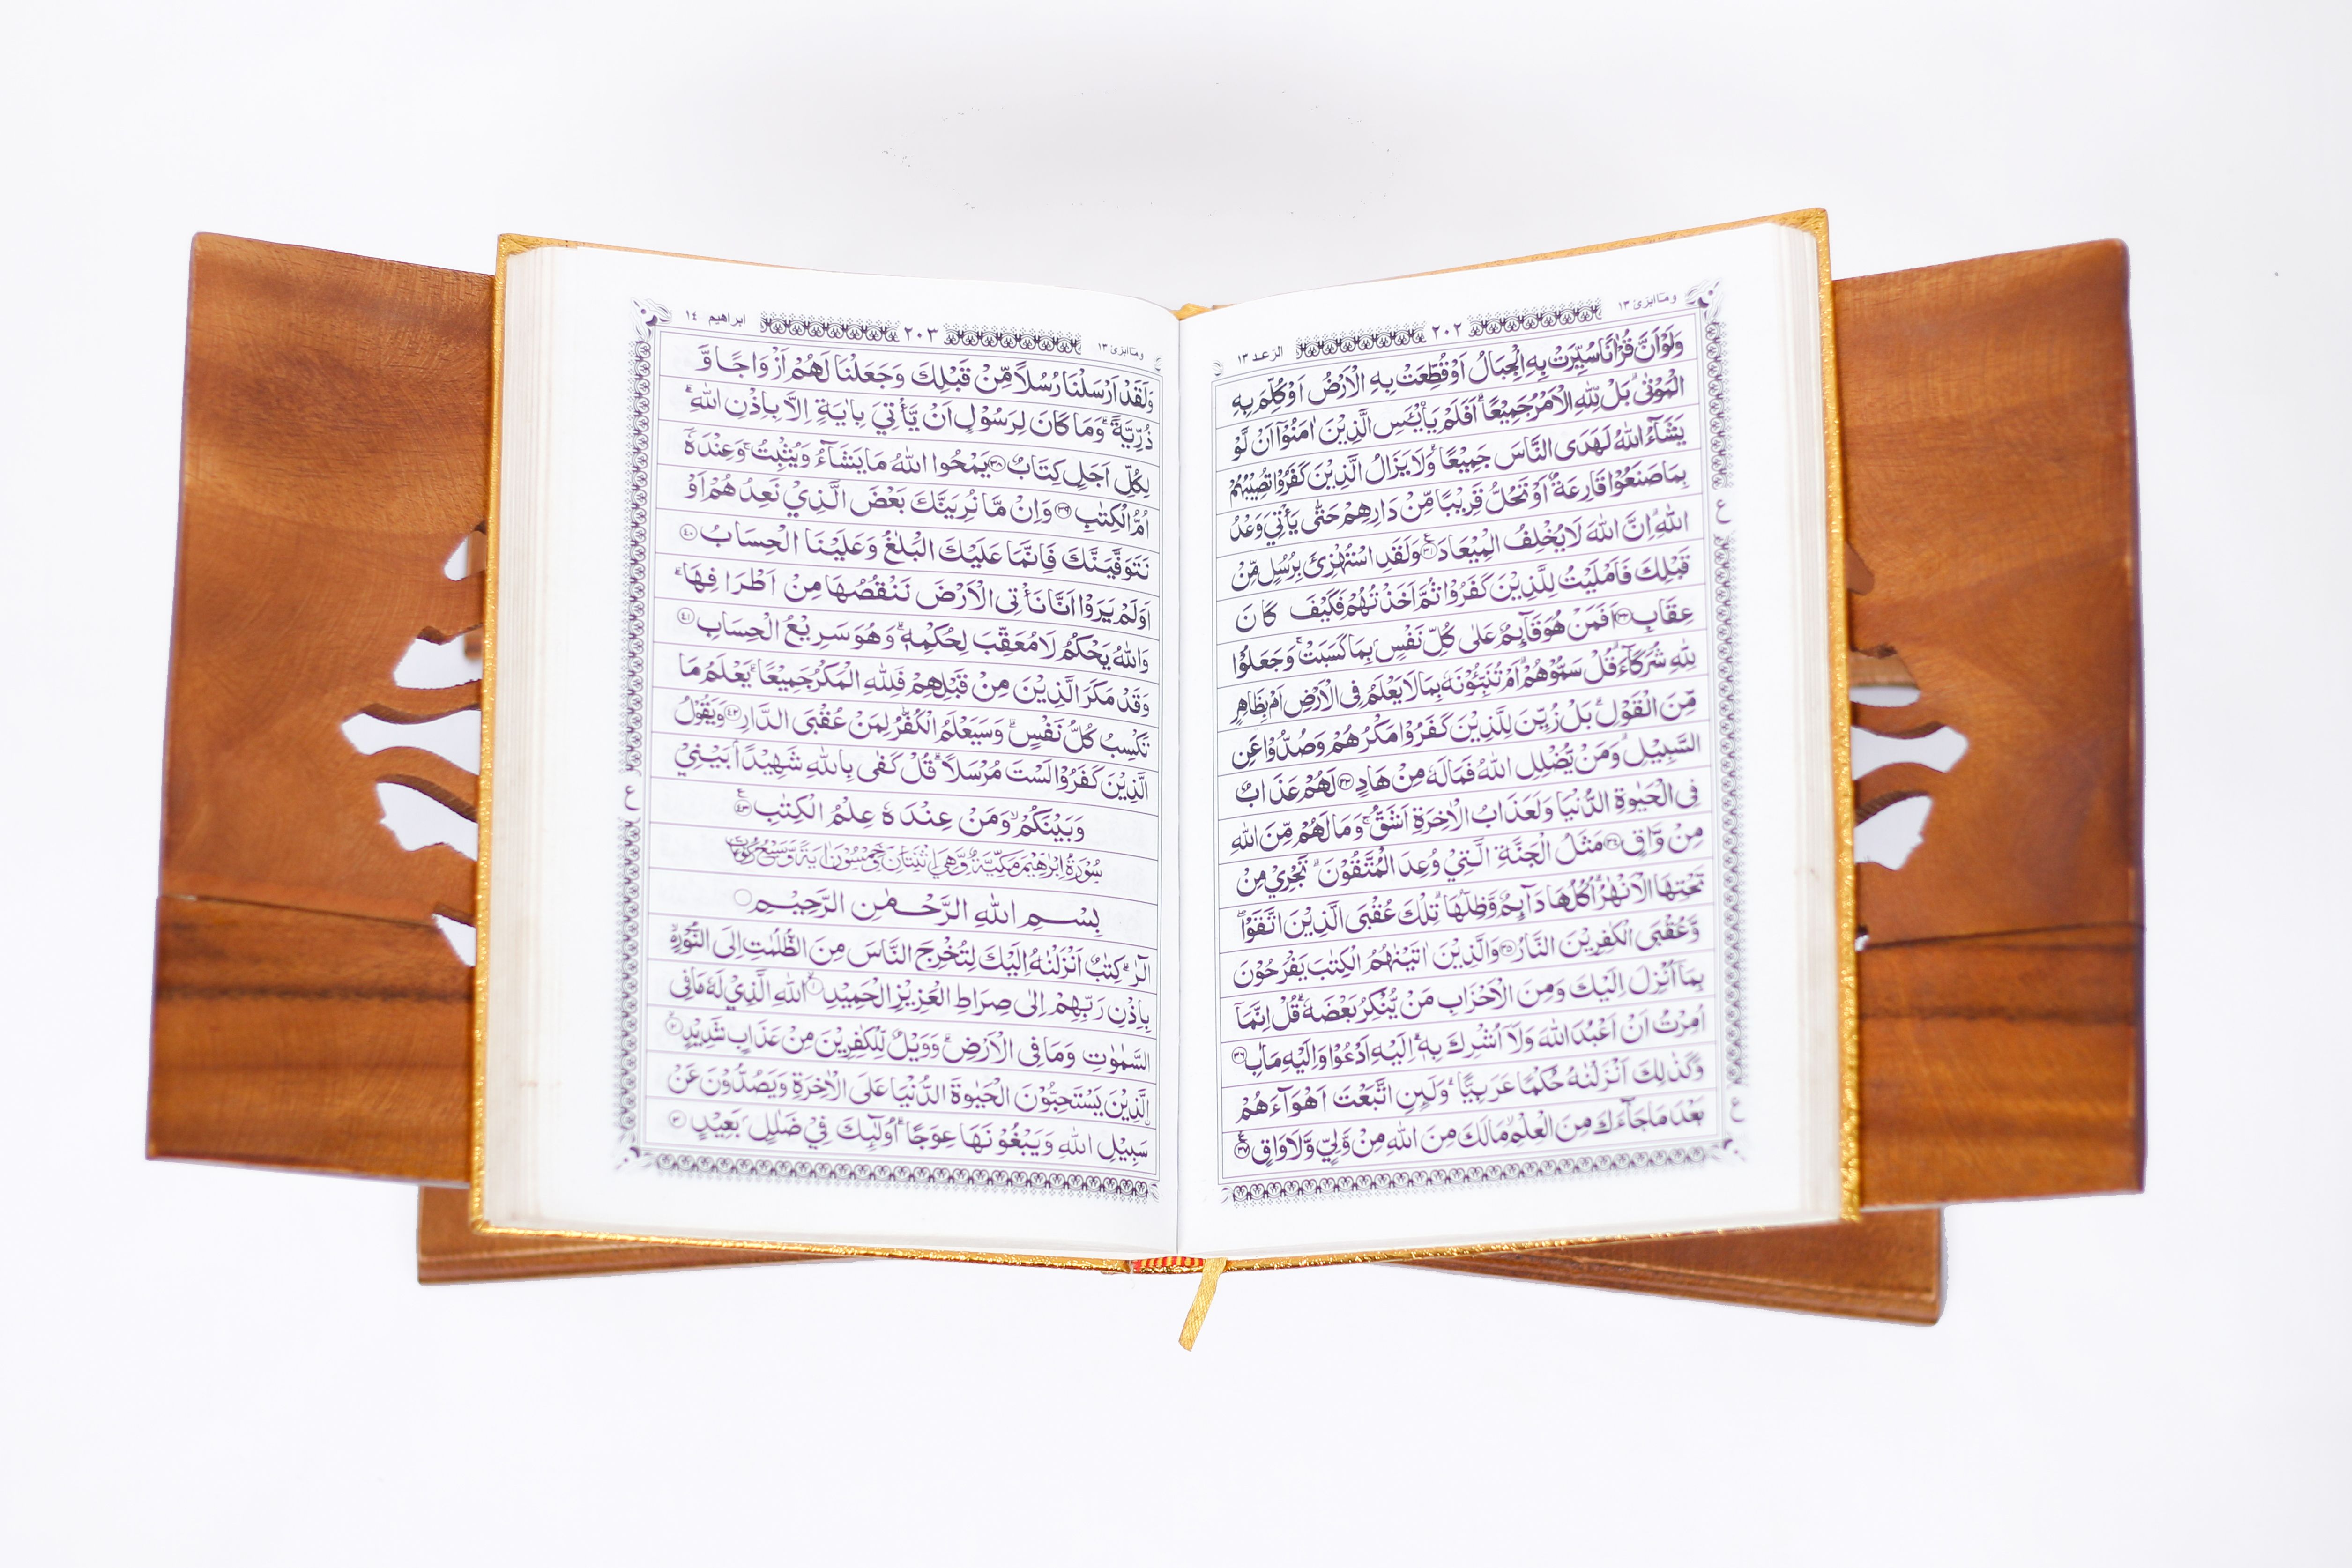 وماابرئ ١٣ ٢٠٢ الرعد ١٣
وَلَوْاَنَّ قُرْاٰنًاسُيِّرَتْ بِهِ الْجِبَالُ اَوْقُطِّعَتْ بِهِ الْاَرْضُ اَوْكُلِّمَ بِهِ
الْمَوْتٰى ۗ بَلْ لِّلّٰهِ الْاَمْرُجَمِيْعًا ۗ اَفَلَمْ يَايْـَٔسِ الَّذِيْنَ اٰمَنُوْٓا اَنْ لَّوْ
يَشَآءُ اللّٰهُ لَهَدَى النَّاسَ جَمِيْعًا ۗ وَلَا يَزَالُ الَّذِيْنَ كَفَرُوْا تُصِيْبُهُمْ
بِمَاصَنَعُوْا قَارِعَةٌ اَوْ تَحُلُّ قَرِيْبًا مِّنْ دَارِهِمْ حَتّٰى يَأْتِيَ وَعْدُ
اللّٰهِ ۗ اِنَّ اللّٰهَ لَا يُخْلِفُ الْمِيْعَادَ ٣١ وَلَقَدِ اسْتُهْزِئَ بِرُسُلٍ مِّنْ
قَبْلِكَ فَاَمْلَيْتُ لِلَّذِيْنَ كَفَرُوْا ثُمَّ اَخَذْتُهُمْ فَكَيْفَ كَانَ
عِقَابِ ٣٢ اَفَمَنْ هُوَ قَآئِمٌ عَلٰى كُلِّ نَفْسٍ بِمَا كَسَبَتْ ۚ وَجَعَلُوْا
لِلّٰهِ شُرَكَآءَ ۗ قُلْ سَمُّوْهُمْ ۗ اَمْ تُنَبِّـُٔوْنَهٗ بِمَا لَا يَعْلَمُ فِى الْاَرْضِ اَمْ بِظَاهِرٍ
مِّنَ الْقَوْلِ ۗ بَلْ زُيِّنَ لِلَّذِيْنَ كَفَرُوْا مَكْرُهُمْ وَصُدُّوْا عَنِ
السَّبِيْلِ ۗ وَمَنْ يُّضْلِلِ اللّٰهُ فَمَالَهٗ مِنْ هَادٍ ٣٣ لَهُمْ عَذَابٌ
فِى الْحَيٰوةِ الدُّنْيَا وَلَعَذَابُ الْاٰخِرَةِ اَشَقُّ ۚ وَمَا لَهُمْ مِّنَ اللّٰهِ
مِنْ وَّاقٍ ٣٤ مَثَلُ الْجَنَّةِ الَّتِيْ وُعِدَ الْمُتَّقُوْنَ ۗ تَجْرِيْ مِنْ
تَحْتِهَا الْاَنْهٰرُ ۗ اُكُلُهَا دَآئِمٌ وَّظِلُّهَا ۗ تِلْكَ عُقْبَى الَّذِيْنَ اتَّقَوْا ۖ
وَّعُقْبَى الْكٰفِرِيْنَ النَّارُ ٣٥ وَالَّذِيْنَ اٰتَيْنٰهُمُ الْكِتٰبَ يَفْرَحُوْنَ
بِمَآ اُنْزِلَ اِلَيْكَ وَمِنَ الْاَحْزَابِ مَنْ يُّنْكِرُ بَعْضَهٗ ۗ قُلْ اِنَّمَآ
اُمِرْتُ اَنْ اَعْبُدَ اللّٰهَ وَلَآ اُشْرِكَ بِهٖ ۗ اِلَيْهِ اَدْعُوْا وَاِلَيْهِ مَاٰبِ ٣٦
وَكَذٰلِكَ اَنْزَلْنٰهُ حُكْمًا عَرَبِيًّا ۗ وَلَئِنِ اتَّبَعْتَ اَهْوَآءَهُمْ
بَعْدَ مَاجَآءَكَ مِنَ الْعِلْمِ ۙ مَالَكَ مِنَ اللّٰهِ مِنْ وَّلِيٍّ وَّلَا وَاقٍ ٣٧
ع
ع
وماابرئ ١٣ ٢٠٣ ابراهيم ١٤
وَلَقَدْ اَرْسَلْنَا رُسُلًا مِّنْ قَبْلِكَ وَجَعَلْنَا لَهُمْ اَزْوَاجًا وَّ
ذُرِّيَّةً ۗ وَمَا كَانَ لِرَسُوْلٍ اَنْ يَّأْتِيَ بِاٰيَةٍ اِلَّا بِاِذْنِ اللّٰهِ ۗ
لِكُلِّ اَجَلٍ كِتَابٌ ٣٨ يَمْحُوا اللّٰهُ مَا يَشَآءُ وَيُثْبِتُ ۚ وَعِنْدَهٗٓ
اُمُّ الْكِتٰبِ ٣٩ وَاِنْ مَّا نُرِيَنَّكَ بَعْضَ الَّذِيْ نَعِدُهُمْ اَوْ
نَتَوَفَّيَنَّكَ فَاِنَّمَا عَلَيْكَ الْبَلٰغُ وَعَلَيْنَا الْحِسَابُ ٤٠
اَوَلَمْ يَرَوْا اَنَّا نَأْتِى الْاَرْضَ نَنْقُصُهَا مِنْ اَطْرَافِهَا ۗ
وَاللّٰهُ يَحْكُمُ لَا مُعَقِّبَ لِحُكْمِهٖ ۗ وَهُوَ سَرِيْعُ الْحِسَابِ ٤١
وَقَدْ مَكَرَ الَّذِيْنَ مِنْ قَبْلِهِمْ فَلِلّٰهِ الْمَكْرُ جَمِيْعًا ۗ يَعْلَمُ مَا
تَكْسِبُ كُلُّ نَفْسٍ ۗ وَسَيَعْلَمُ الْكُفّٰرُ لِمَنْ عُقْبَى الدَّارِ ٤٢ وَيَقُوْلُ
الَّذِيْنَ كَفَرُوْا لَسْتَ مُرْسَلًا ۗ قُلْ كَفٰى بِاللّٰهِ شَهِيْدًا ۢ بَيْنِيْ
وَبَيْنَكُمْ ۙ وَمَنْ عِنْدَهٗ عِلْمُ الْكِتٰبِ ٤٣
سُوْرَةُ اِبْرٰهِيْمَ مَكِّيَّةٌ وَّهِيَ اثْنَتَانِ وَخَمْسُوْنَ اٰيَةً وَّسَبْعُ رُكُوْعَاتٍ
بِسْمِ اللّٰهِ الرَّحْمٰنِ الرَّحِيْمِ
الٓرٰ ۗ كِتٰبٌ اَنْزَلْنٰهُ اِلَيْكَ لِتُخْرِجَ النَّاسَ مِنَ الظُّلُمٰتِ اِلَى النُّوْرِ ۙ
بِاِذْنِ رَبِّهِمْ اِلٰى صِرَاطِ الْعَزِيْزِ الْحَمِيْدِ ١ اللّٰهِ الَّذِيْ لَهٗ مَا فِى
السَّمٰوٰتِ وَمَا فِى الْاَرْضِ ۗ وَوَيْلٌ لِّلْكٰفِرِيْنَ مِنْ عَذَابٍ شَدِيْدٍ ٢
الَّذِيْنَ يَسْتَحِبُّوْنَ الْحَيٰوةَ الدُّنْيَا عَلَى الْاٰخِرَةِ وَيَصُدُّوْنَ عَنْ
سَبِيْلِ اللّٰهِ وَيَبْغُوْنَهَا عِوَجًا ۗ اُولٰٓئِكَ فِيْ ضَلٰلٍ ۢ بَعِيْدٍ ٣
ع